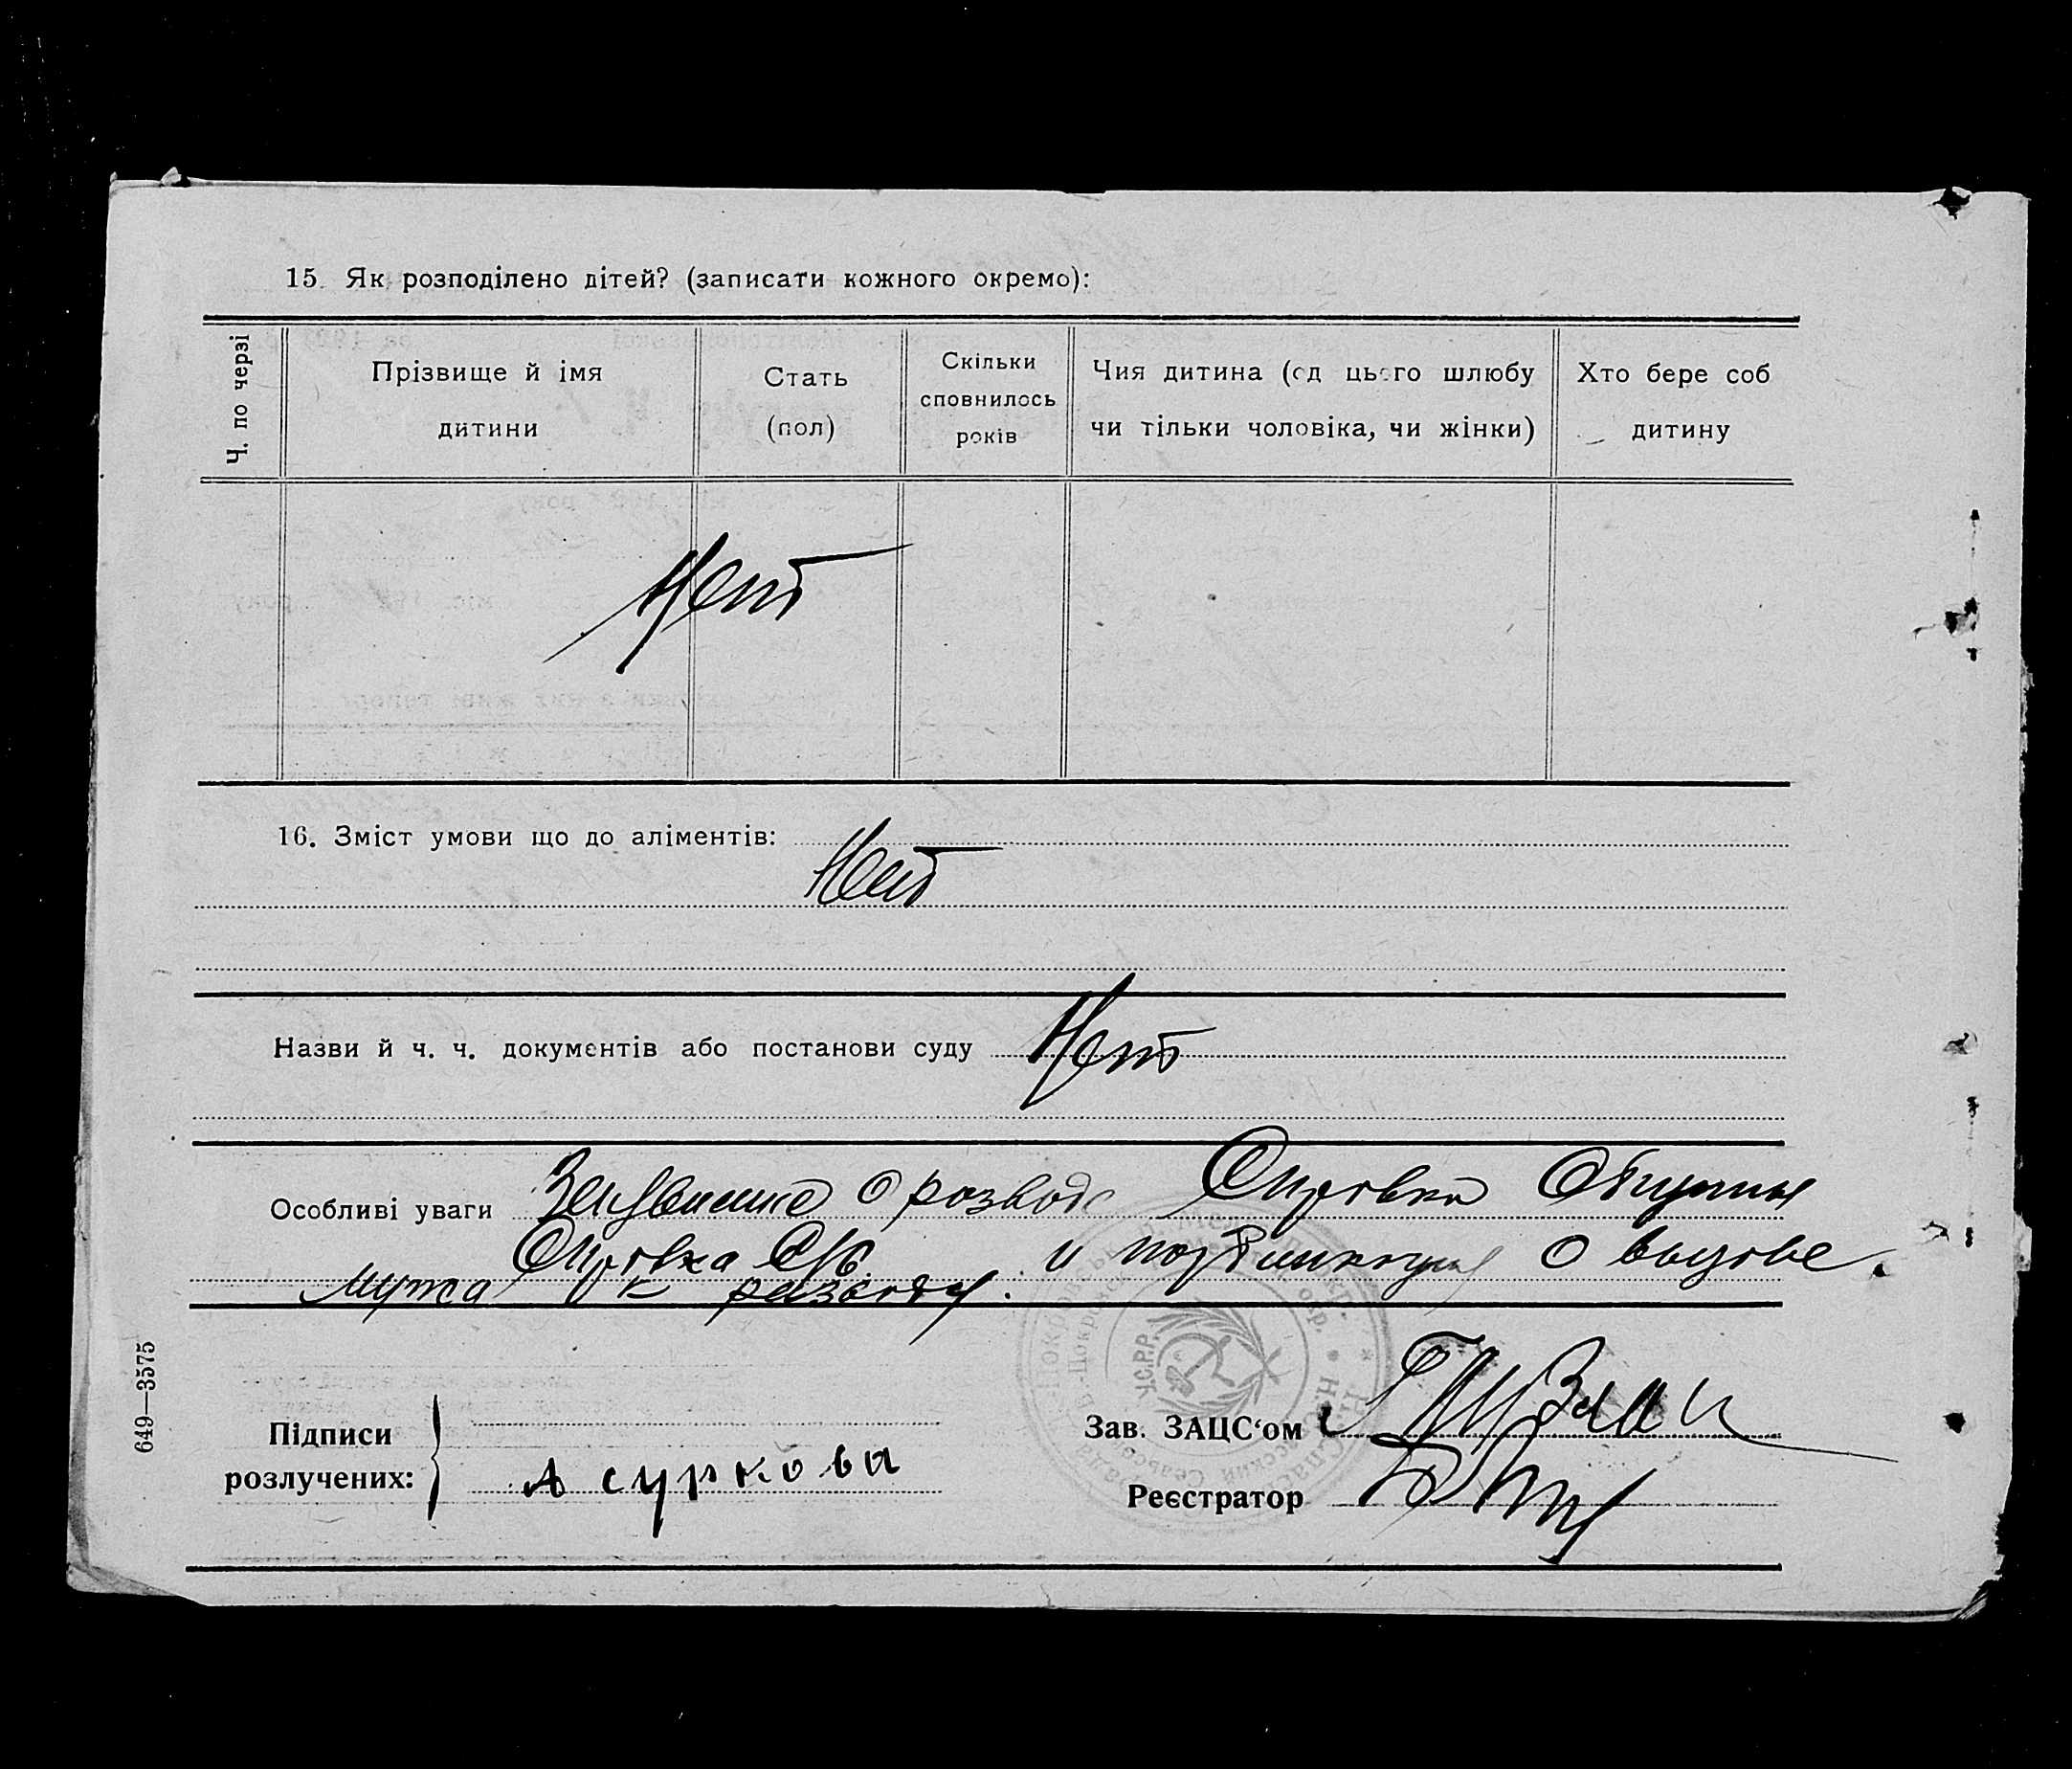 15. Як розподілено дітей? (записати кожного окремо):
Ч. по черзі
Прізвище й імя
дитини
Стать
(пол)
Скільки
сповнилось
років
Чия дитина (од цього шлюбу
чи тільки чоловіка, чи жінки)
Хто бере соб
дитину
Нет
16. Зміст умови що до аліментів:
Нет
Назви й ч. ч. документів або постанови суду Нет
Особливі уваги Заявление о разводе Справка
Справка и о вызове.
мужа к разводу.
649—3575
Підписи
розлучених:
А суркова
Зав. ЗАЦС‘ом
Реєстратор
У.С.Р.Р.